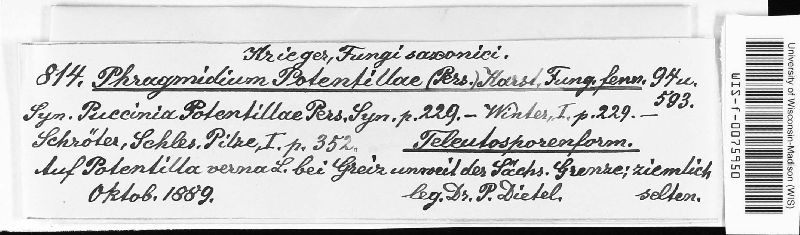 Krieger, Fungi saxonici.
814. Phragmidium Potentillae (Pers.) Karst, Fung. fenn. 94 u. 593.
Syn. Puccinia Potentillae Pers. Syn. p. 229. – Winter, I. p. 229. –
Schröter, Schles. Pilze, I. p. 352. Teleutosporenform.
Auf Potentilla verna L. bei Greiz unweit der Sächs. Grenze; ziemlich
Oktob. 1889. leg. Dr. P. Dietel. selten.
University of Wisconsin-Madison (WIS)
WIS-f-0075950